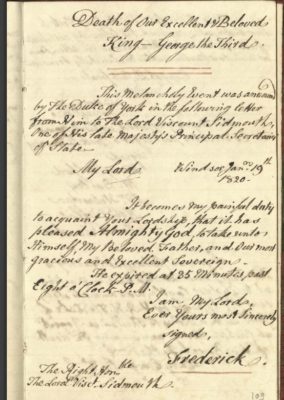 Death of Our Excellent & Beloved
King — George the Third.
This Melancholy Event was announ
by The Duke of York in the following letter
from Him to The Lord Viscount Sidmouth,
One of His late Majesty's Principal Secretaries
of State —
My Lord Windsor Janry 29th
1820 —
It becomes my painful duty
to acquaint Your Lordship, that it has
pleased Almighty God, to take unto
Himself, My Beloved Father, and Our most
gracious and Excellent Sovereign.
He expired at 35 Minutes, past
Eight o'Clock P.M.
I am My Lord,
Ever Yours most Sincerely
Signed,
Frederick.
The Right Honble
The Lord Visct Sidmouth.
109